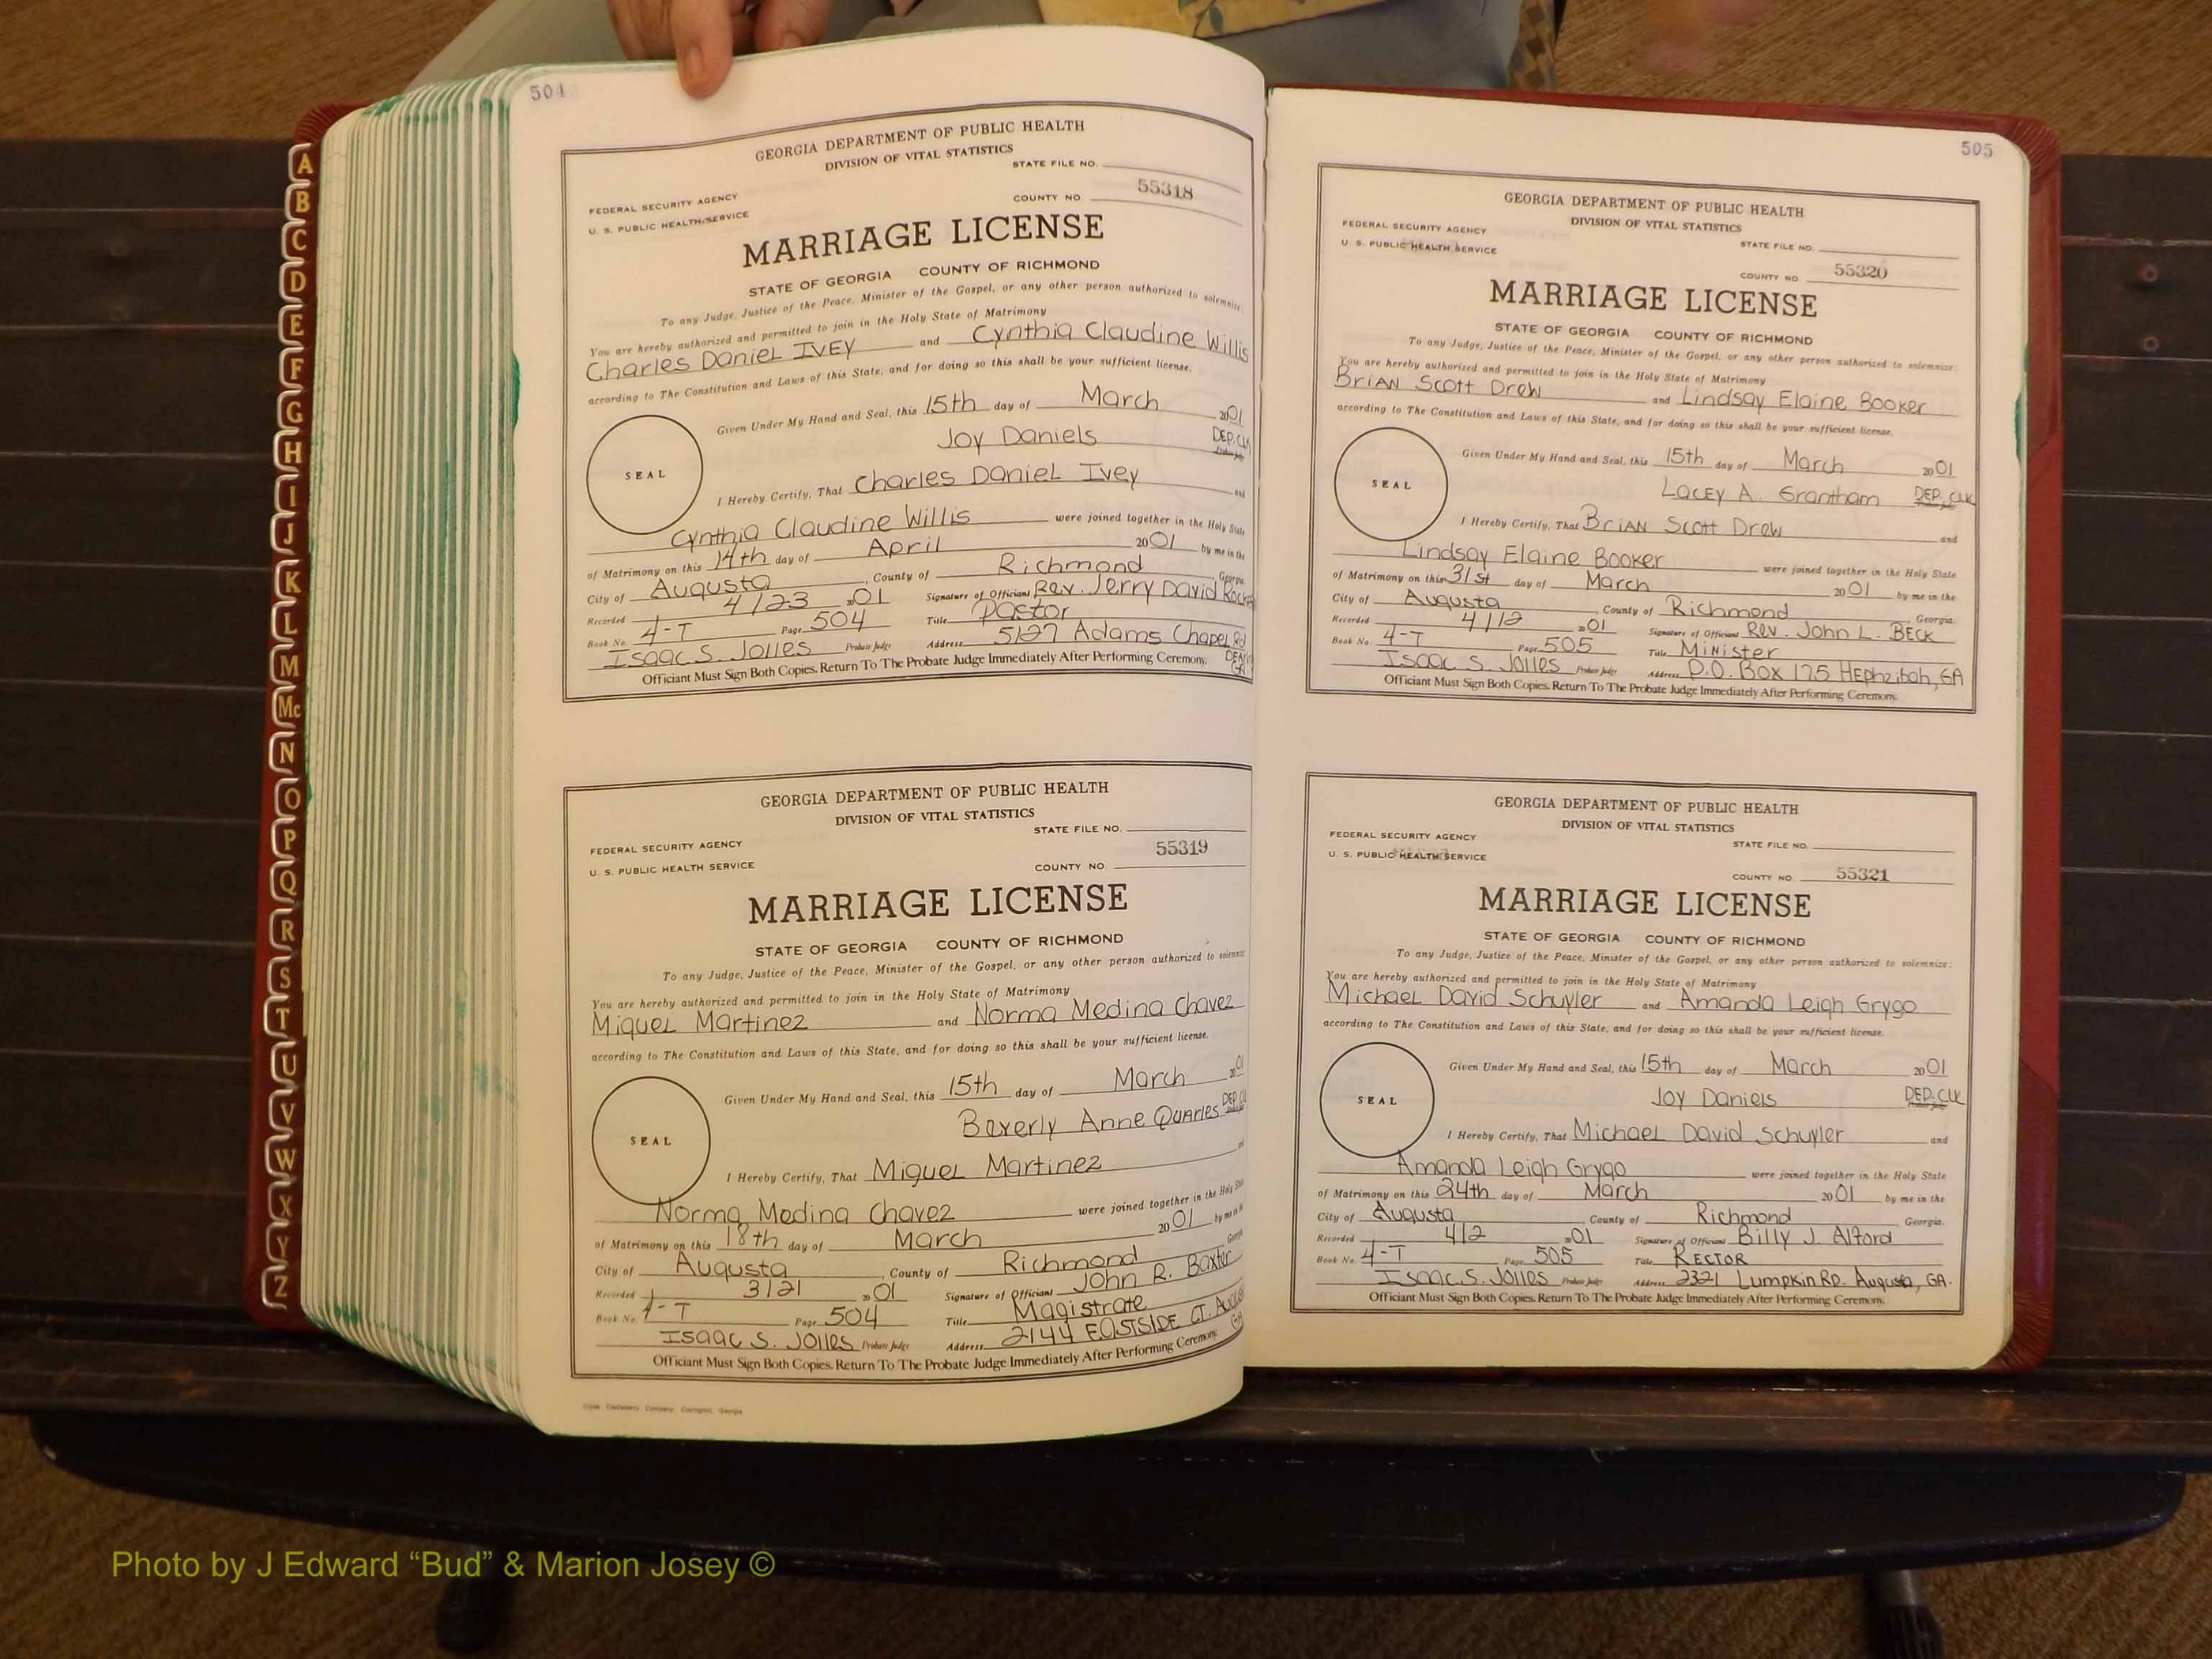 A
B
C
D
E
F
G
H
I
J
K
L
M
Mc
N
O
P
Q
R
S
T
U
V
W
X
Y
Z
504
GEORGIA DEPARTMENT OF PUBLIC HEALTH
DIVISION OF VITAL STATISTICS
STATE FILE NO.
FEDERAL SECURITY AGENCY
COUNTY NO. 55318
U. S. PUBLIC HEALTH SERVICE
MARRIAGE LICENSE
STATE OF GEORGIA COUNTY OF RICHMOND
To any Judge, Justice of the Peace, Minister of the Gospel, or any other person authorized to solemnize:
You are hereby authorized and permitted to join in the Holy State of Matrimony
Charles Daniel IVEY and Cynthia Claudine Willis
according to The Constitution and Laws of this State, and for doing so this shall be your sufficient license.
Given Under My Hand and Seal, this 15th day of March 2001
Joy Daniels DEP. CLK
SEAL
I Hereby Certify, That Charles Daniel Ivey and
Cynthia Claudine Willis were joined together in the Holy State
of Matrimony on this 14th day of April 2001 by me in the
City of Augusta, County of Richmond Georgia.
Recorded 4/23 2001 Signature of Officiant Rev. Jerry David
Book No. 4-T Page 504 Title Pastor
Isaac S. Jolles Probate Judge Address 5127 Adams Chapel Rd
GA.
Officiant Must Sign Both Copies. Return To The Probate Judge Immediately After Performing Ceremony.
GEORGIA DEPARTMENT OF PUBLIC HEALTH
DIVISION OF VITAL STATISTICS
STATE FILE NO.
FEDERAL SECURITY AGENCY
55319
U. S. PUBLIC HEALTH SERVICE COUNTY NO.
MARRIAGE LICENSE
STATE OF GEORGIA COUNTY OF RICHMOND
To any Judge, Justice of the Peace, Minister of the Gospel, or any other person authorized to solemnize
You are hereby authorized and permitted to join in the Holy State of Matrimony
Miguel Martinez and Norma Medina Chavez
according to The Constitution and Laws of this State, and for doing so this shall be your sufficient license.
Given Under My Hand and Seal, this 15th day of March 2001
Beverly Anne Quarles DEP. CL
SEAL
I Hereby Certify, That Miguel Martinez and
Norma Medina Chavez were joined together in the Holy State
of Matrimony on this 18th day of March 2001 by me in
City of Augusta, County of Richmond Georgia
Recorded 3/21 2001 Signature of Officiant John R. Baxter
Book No. 4-T Page 504 Title Magistrate
Isaac S. Jolles Probate Judge Address 2144 EASTSIDE CT. AUGUSTA
GA
Officiant Must Sign Both Copies. Return To The Probate Judge Immediately After Performing Ceremony.
Company, Covington, Georgia
505
GEORGIA DEPARTMENT OF PUBLIC HEALTH
DIVISION OF VITAL STATISTICS
FEDERAL SECURITY AGENCY
STATE FILE NO.
U. S. PUBLIC HEALTH SERVICE
COUNTY NO. 55320
MARRIAGE LICENSE
STATE OF GEORGIA COUNTY OF RICHMOND
To any Judge, Justice of the Peace, Minister of the Gospel, or any other person authorized to solemnize:
You are hereby authorized and permitted to join in the Holy State of Matrimony
Brian Scott Drew and Lindsay Elaine Booker
according to The Constitution and Laws of this State, and for doing so this shall be your sufficient license.
Given Under My Hand and Seal, this 15th day of March 2001
Lacey A. Grantham DEP. CLK
SEAL
I Hereby Certify, That Brian Scott Drew and
Lindsay Elaine Booker were joined together in the Holy State
of Matrimony on this 31st day of March 2001 by me in the
City of Augusta, County of Richmond Georgia.
Recorded 4/12 2001 Signature of Officiant Rev. John L. BECK
Book No. 4-T Page 505 Title Minister
Isaac S. Jolles Probate Judge Address P.O. Box 175 Hephzibah, GA
Officiant Must Sign Both Copies. Return To The Probate Judge Immediately After Performing Ceremony.
GEORGIA DEPARTMENT OF PUBLIC HEALTH
DIVISION OF VITAL STATISTICS
FEDERAL SECURITY AGENCY
STATE FILE NO.
U. S. PUBLIC HEALTH SERVICE
COUNTY NO. 55321
MARRIAGE LICENSE
STATE OF GEORGIA COUNTY OF RICHMOND
To any Judge, Justice of the Peace, Minister of the Gospel, or any other person authorized to solemnize:
You are hereby authorized and permitted to join in the Holy State of Matrimony
Michael David Schuyler and Amanda Leigh Grygo
according to The Constitution and Laws of this State, and for doing so this shall be your sufficient license.
Given Under My Hand and Seal, this 15th day of March 2001
Joy Daniels DEP. CLK
SEAL
I Hereby Certify, That Michael David Schuyler and
Amanda Leigh Grygo were joined together in the Holy State
of Matrimony on this 24th day of March 2001 by me in the
City of Augusta, County of Richmond Georgia.
Recorded 4/2 2001 Signature of Officiant Billy J. Alford
Book No. 4-T Page 505 Title RECTOR
Isaac S. Jolles Probate Judge Address 2321 Lumpkin RD. Augusta, GA.
Officiant Must Sign Both Copies. Return To The Probate Judge Immediately After Performing Ceremony.
Photo by J Edward “Bud” & Marion Josey ©